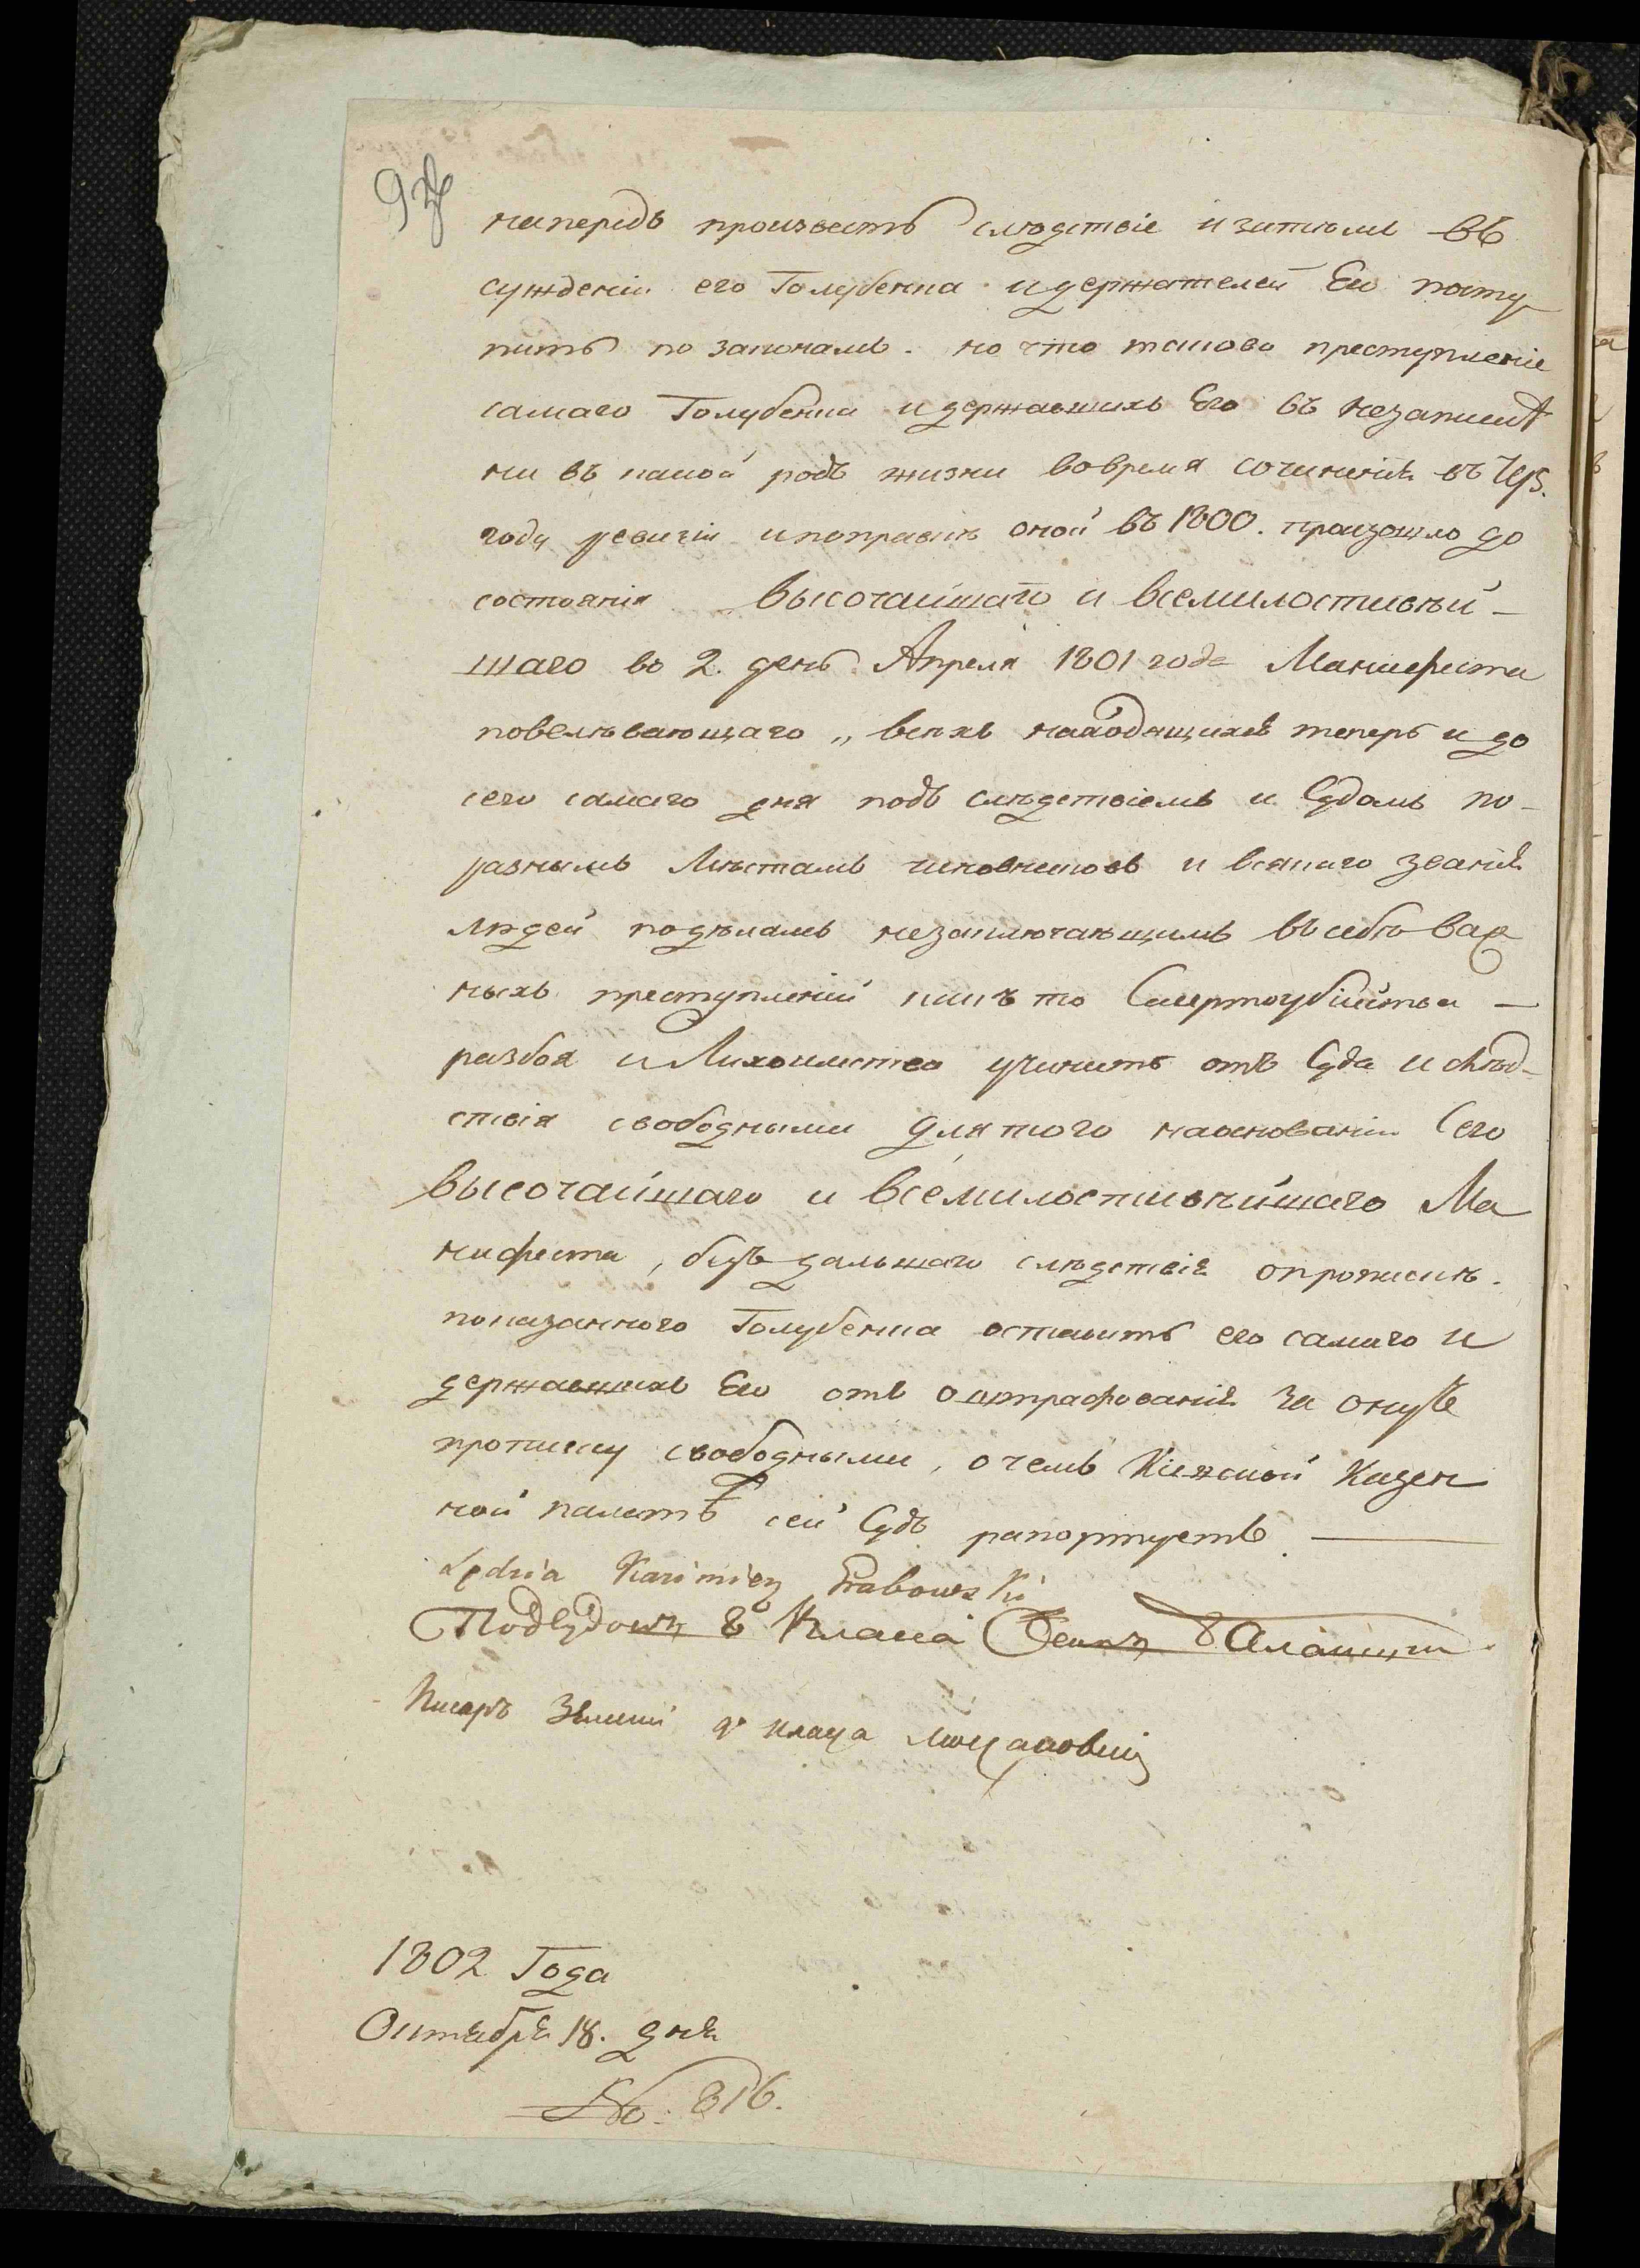 напередъ произвесть слѣдствіе и затѣмъ въ
сужденіи его Голубенка и держателей Его посту
пить по законамъ. но что таково преступленіе
самаго Голубенка и державшихъ Его въ незаписи
ни въ какой родъ жизни вовремя сочиненія въ 795.
году ревизіи и поправки оной въ 1800. произошло до
состоянія Высочайшаго и всемилостивѣй-
шаго во 2. день Апреля 1801 года Манифеста
повелѣвающаго „ всѣхъ находящихся теперь и до
сего самаго дня подъ слѣдствіемъ и Судомъ по-
разнымъ Мѣстамъ чиновниковъ и всякаго званія
людей подѣламъ незаключающимъ въ себѣ важ
ныхъ преступленій какъ то Смертоубійства —
разбоя и Лихоимства учинить отъ Суда и слѣд-
ствія свободными для того наоснованіи Сего
высочайшаго и всемилостивѣйшаго Ма
нифеста, безъ дальшаго слѣдствія опрописки.
показанного Голубенка оставить его самаго и
державшихъ Его отъ оштрафованія за оную
прописку свободными, о чемъ Кіевской Казен
ной палатѣ сей Судъ рапортуетъ. —
Sędzia Kazimierz Grabowski
Подсудокъ 8 Класса
Писарь Земскій 9º класа
1802 Года
Октября 18. дня
No. 816.